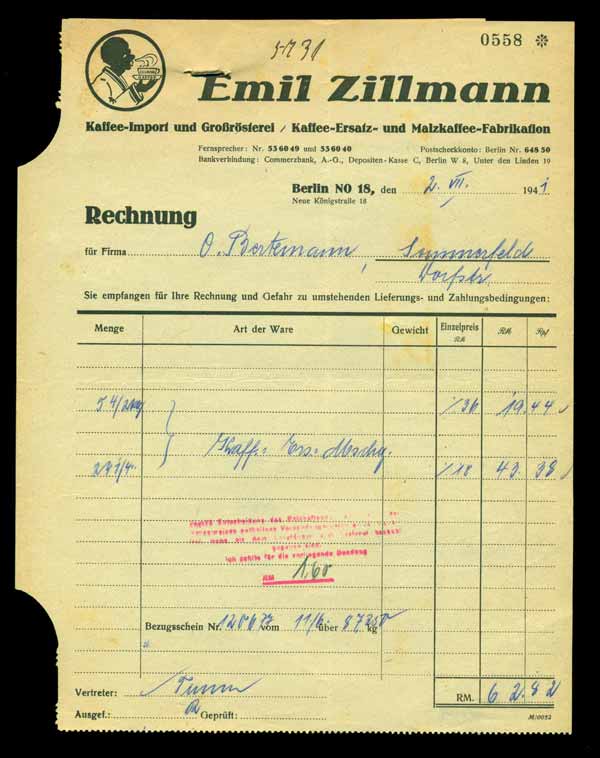 0558 ※
5-12 31
Emil Zillmann
Kaffee-Import und Großrösterei / Kaffee-Ersatz- und Malzkaffee-Fabrikation
Fernsprecher: Nr. 53 60 49 und 53 60 40
Postscheckkonto: Berlin Nr. 648 50
Bankverbindung: Commerzbank, A.-G., Depositen-Kasse C, Berlin W 8, Unter den Linden 19
Berlin NO 18, den 2. VII. 1941
Neue Königstraße 18
Rechnung
für Firma O. Bortemann, Sommerfeld
Dorfstr
Sie empfangen für Ihre Rechnung und Gefahr zu umstehenden Lieferungs- und Zahlungsbedingungen:
Menge Art der Ware Gewicht Einzelpreis RM RM Rpf
54/2 36 19.44
Kaff. Ers. Mschg.
241/4 18 43.38
Ich zahlte für die vorliegende Sendung
RM 1,60
Bezugsschein Nr. vom 11/6. über 8725 kg
Vertreter:
RM. 62.82
Ausgef.: Geprüft:
M/0052